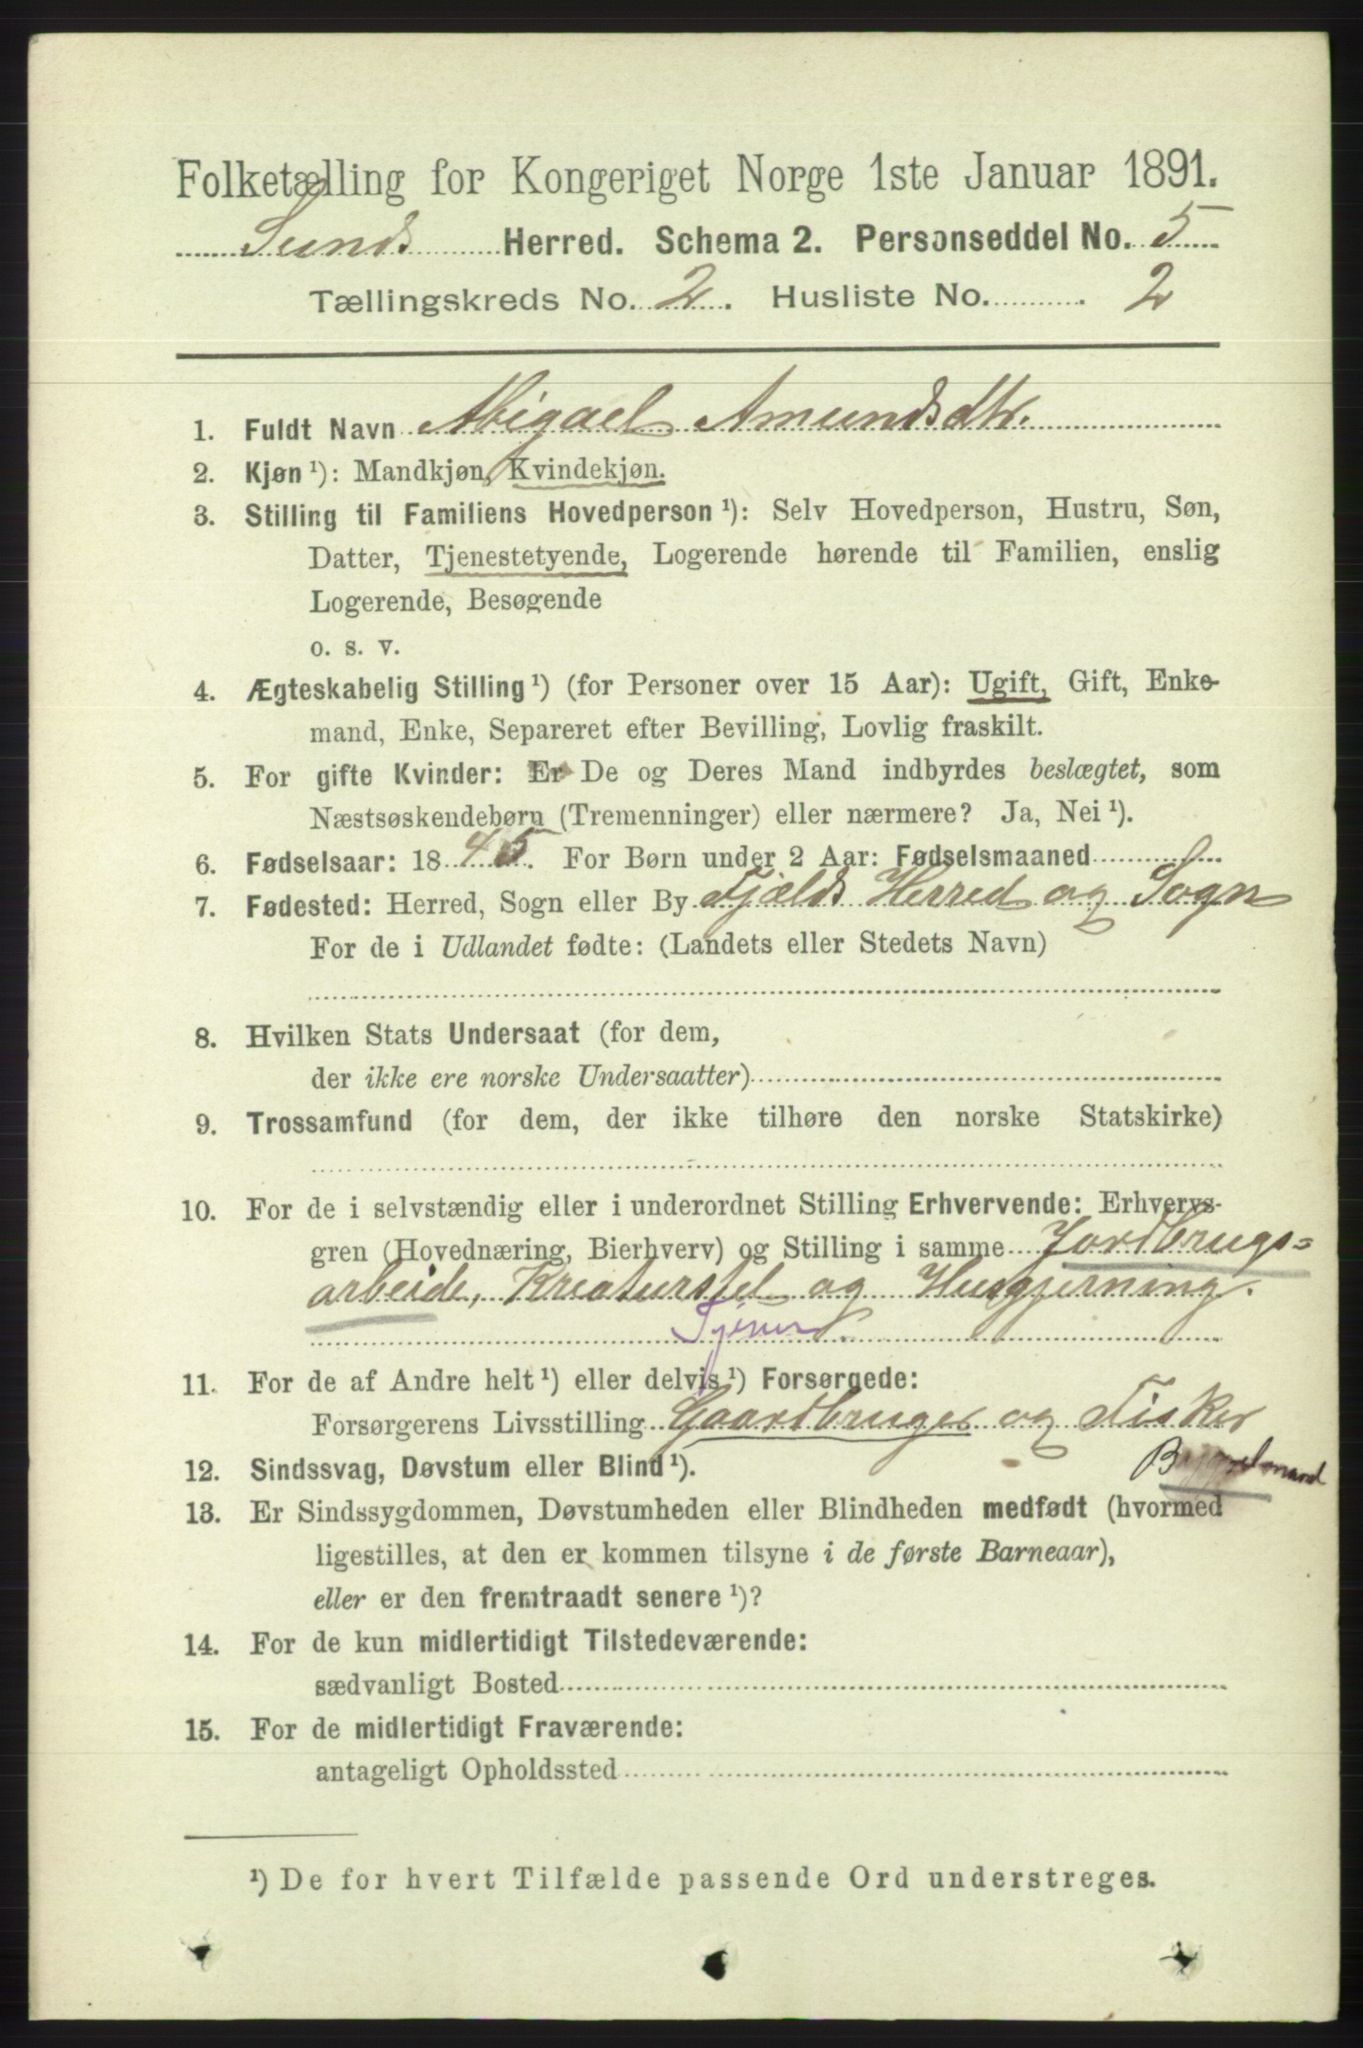 Folketælling for Kongeriget Norge 1ste Januar 1891.
Sunds Herred. Schema 2. Personseddel No. 5
Tællingskreds No. 2. Husliste No. 2
1. Fuldt Navn Abigael Amundsdtr.
2. Kjøn ¹): Mandkjøn, Kvindekjøn.
3. Stilling til Familiens Hovedperson ¹): Selv Hovedperson, Hustru, Søn,
Datter, Tjenestetyende, Logerende hørende til Familien, enslig
Logerende, Besøgende
o. s. v.
4. Ægteskabelig Stilling ¹) (for Personer over 15 Aar): Ugift, Gift, Enke-
mand, Enke, Separeret efter Bevilling, Lovlig fraskilt.
5. For gifte Kvinder: Er De og Deres Mand indbyrdes beslægtet, som
Næstsøskendebørn (Tremenninger) eller nærmere? Ja, Nei ¹).
6. Fødselsaar: 1845. For Børn under 2 Aar: Fødselsmaaned
7. Fødested: Herred, Sogn eller By Fjælds Herred og Sogn
For de i Udlandet fødte: (Landets eller Stedets Navn)
8. Hvilken Stats Undersaat (for dem,
der ikke ere norske Undersaatter)
9. Trossamfund (for dem, der ikke tilhøre den norske Statskirke)
10. For de i selvstændig eller i underordnet Stilling Erhvervende: Erhvervs-
gren (Hovednæring, Bierhverv) og Stilling i samme Jordbrugs=
arbeide, Kreaturstel og Husgjerning.
Tjener
11. For de af Andre helt ¹) eller delvis ¹) Forsørgede:
Forsørgerens Livsstilling Gaardbruger og Fisker
12. Sindssvag, Døvstum eller Blind ¹).
13. Er Sindssygdommen, Døvstumheden eller Blindheden medfødt (hvormed
ligestilles, at den er kommen tilsyne i de første Barneaar),
eller er den fremtraadt senere ¹)?
14. For de kun midlertidigt Tilstedeværende:
sædvanligt Bosted
15. For de midlertidigt Fraværende:
antageligt Opholdssted
¹) De for hvert Tilfælde passende Ord understreges.